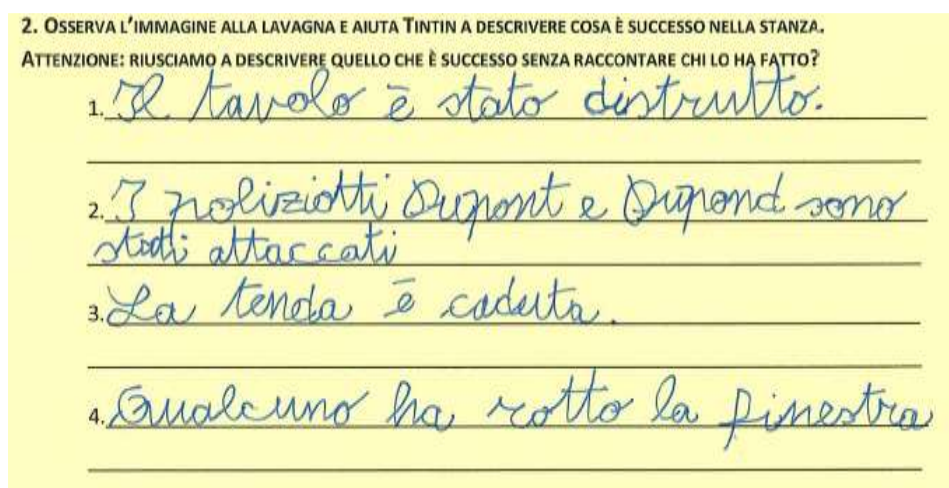 2. OSSERVA L'IMMAGINE ALLA LAVAGNA E AIUTA TINTIN A DESCRIVERE COSA È SUCCESSO NELLA STANZA.
ATTENZIONE: RIUSCIAMO A DESCRIVERE QUELLO CHE È SUCCESSO SENZA RACCONTARE CHI LO HA FATTO?
1. Il tavolo è stato distrutto.
2. I poliziotti Dupont e Dupond sono
stati attaccati
3. La tenda è caduta.
4. Qualcuno ha rotto la finestra